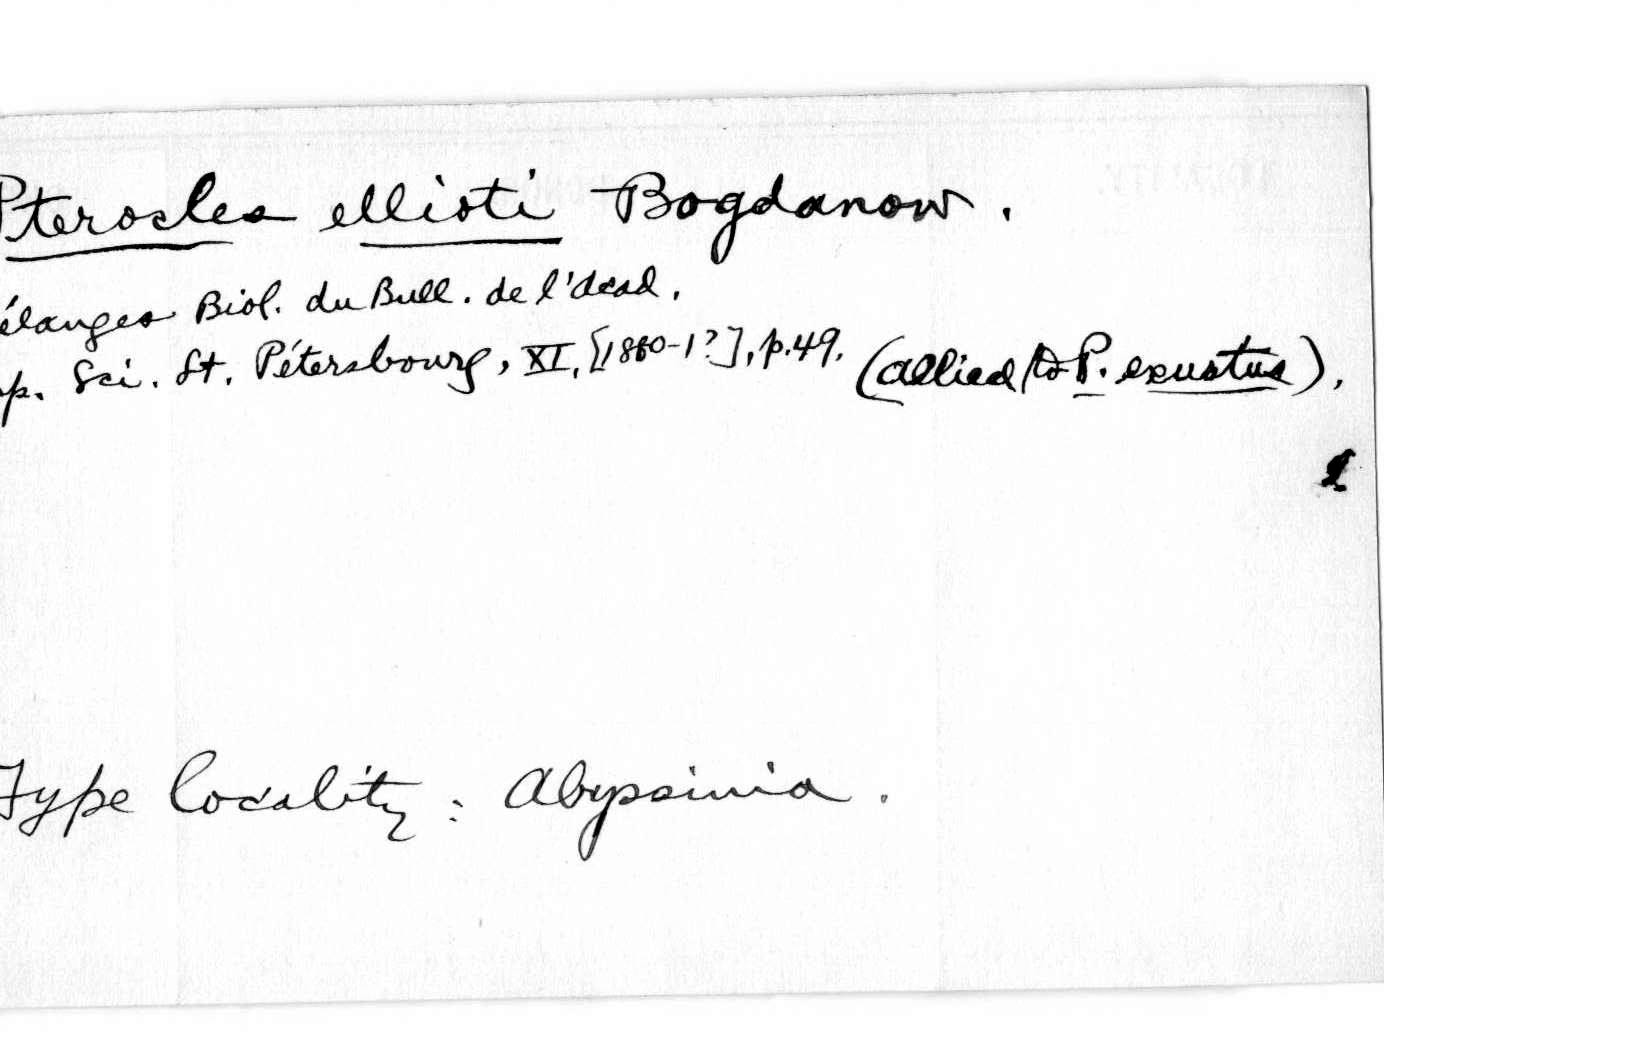 Pterocles ellioti Bogdanow.
élanges Biol. du Bull. de l'Acad.
p. Sci. St. Pétersbourg, XI, [1880-1?], p.49. (allied to P. exustus).
Type locality: Abyssinia.